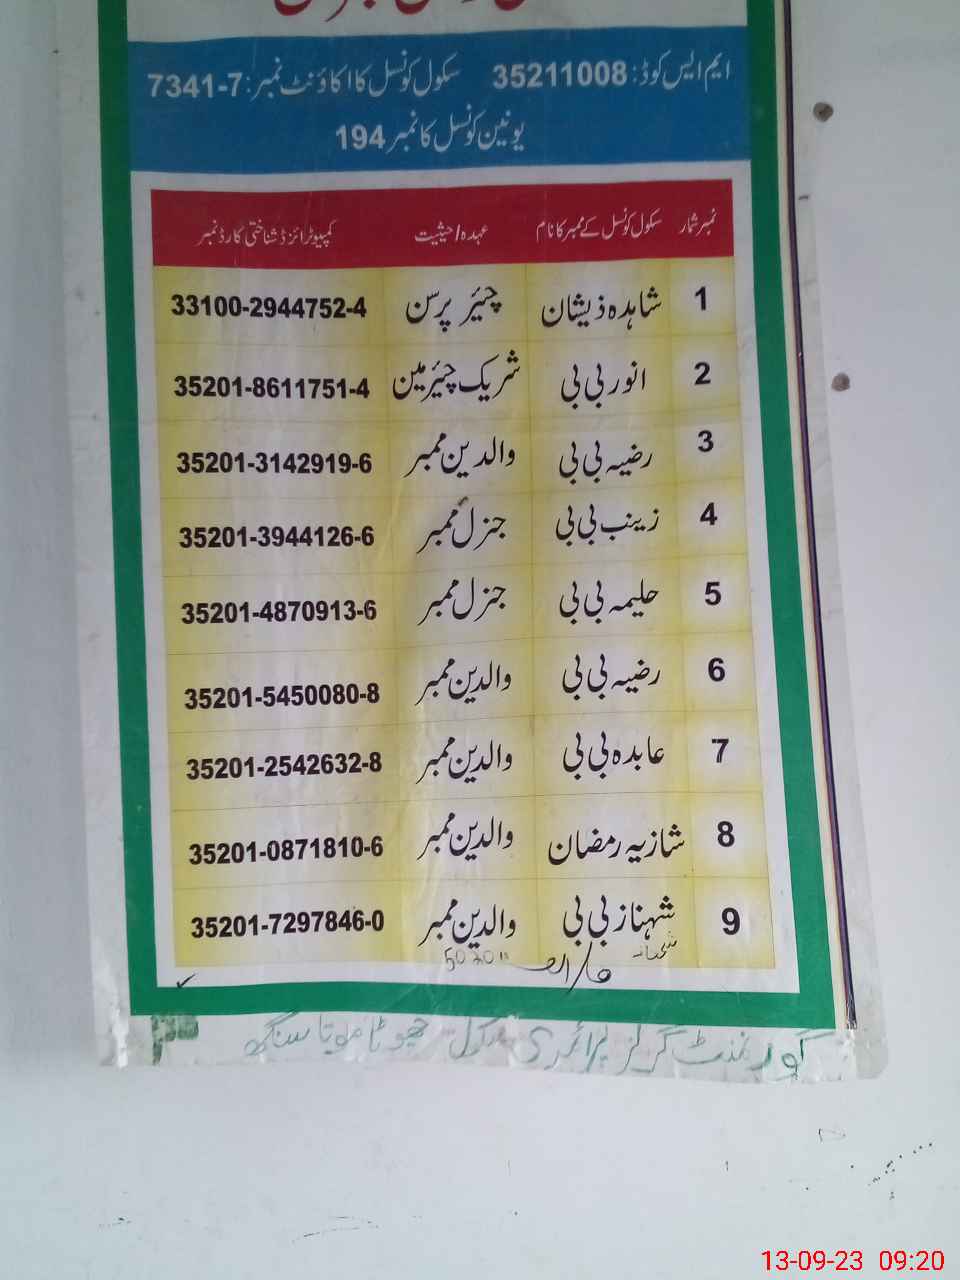 ایم ایس کوڈ: 35211008 سکول کونسل کا اکاؤنٹ نمبر: 7-7341
یونین کونسل کا نمبر 194
نمبر شمار سکول کونسل کے ممبر کا نام عہدہ/حیثیت کمپیوٹرائزڈ شناختی کارڈ نمبر
1 شاہدہ ذیشان چیئر پرسن 33100-2944752-4
2 انور بی بی شریک چیئرمین 35201-8611751-4
3 رضیہ بی بی والدین ممبر 35201-3142919-6
4 زینب بی بی جنرل ممبر 35201-3944126-6
5 حلیمہ بی بی جنرل ممبر 35201-4870913-6
6 رضیہ بی بی والدین ممبر 35201-5450080-8
7 عابدہ بی بی والدین ممبر 35201-2542632-8
8 شازیہ رمضان والدین ممبر 35201-0871810-6
9 شہناز بی بی والدین ممبر 35201-7297846-0
گورنمنٹ گرلز پرائمری سکول چھوٹا موتا سنگھ
13-09-23 09:20